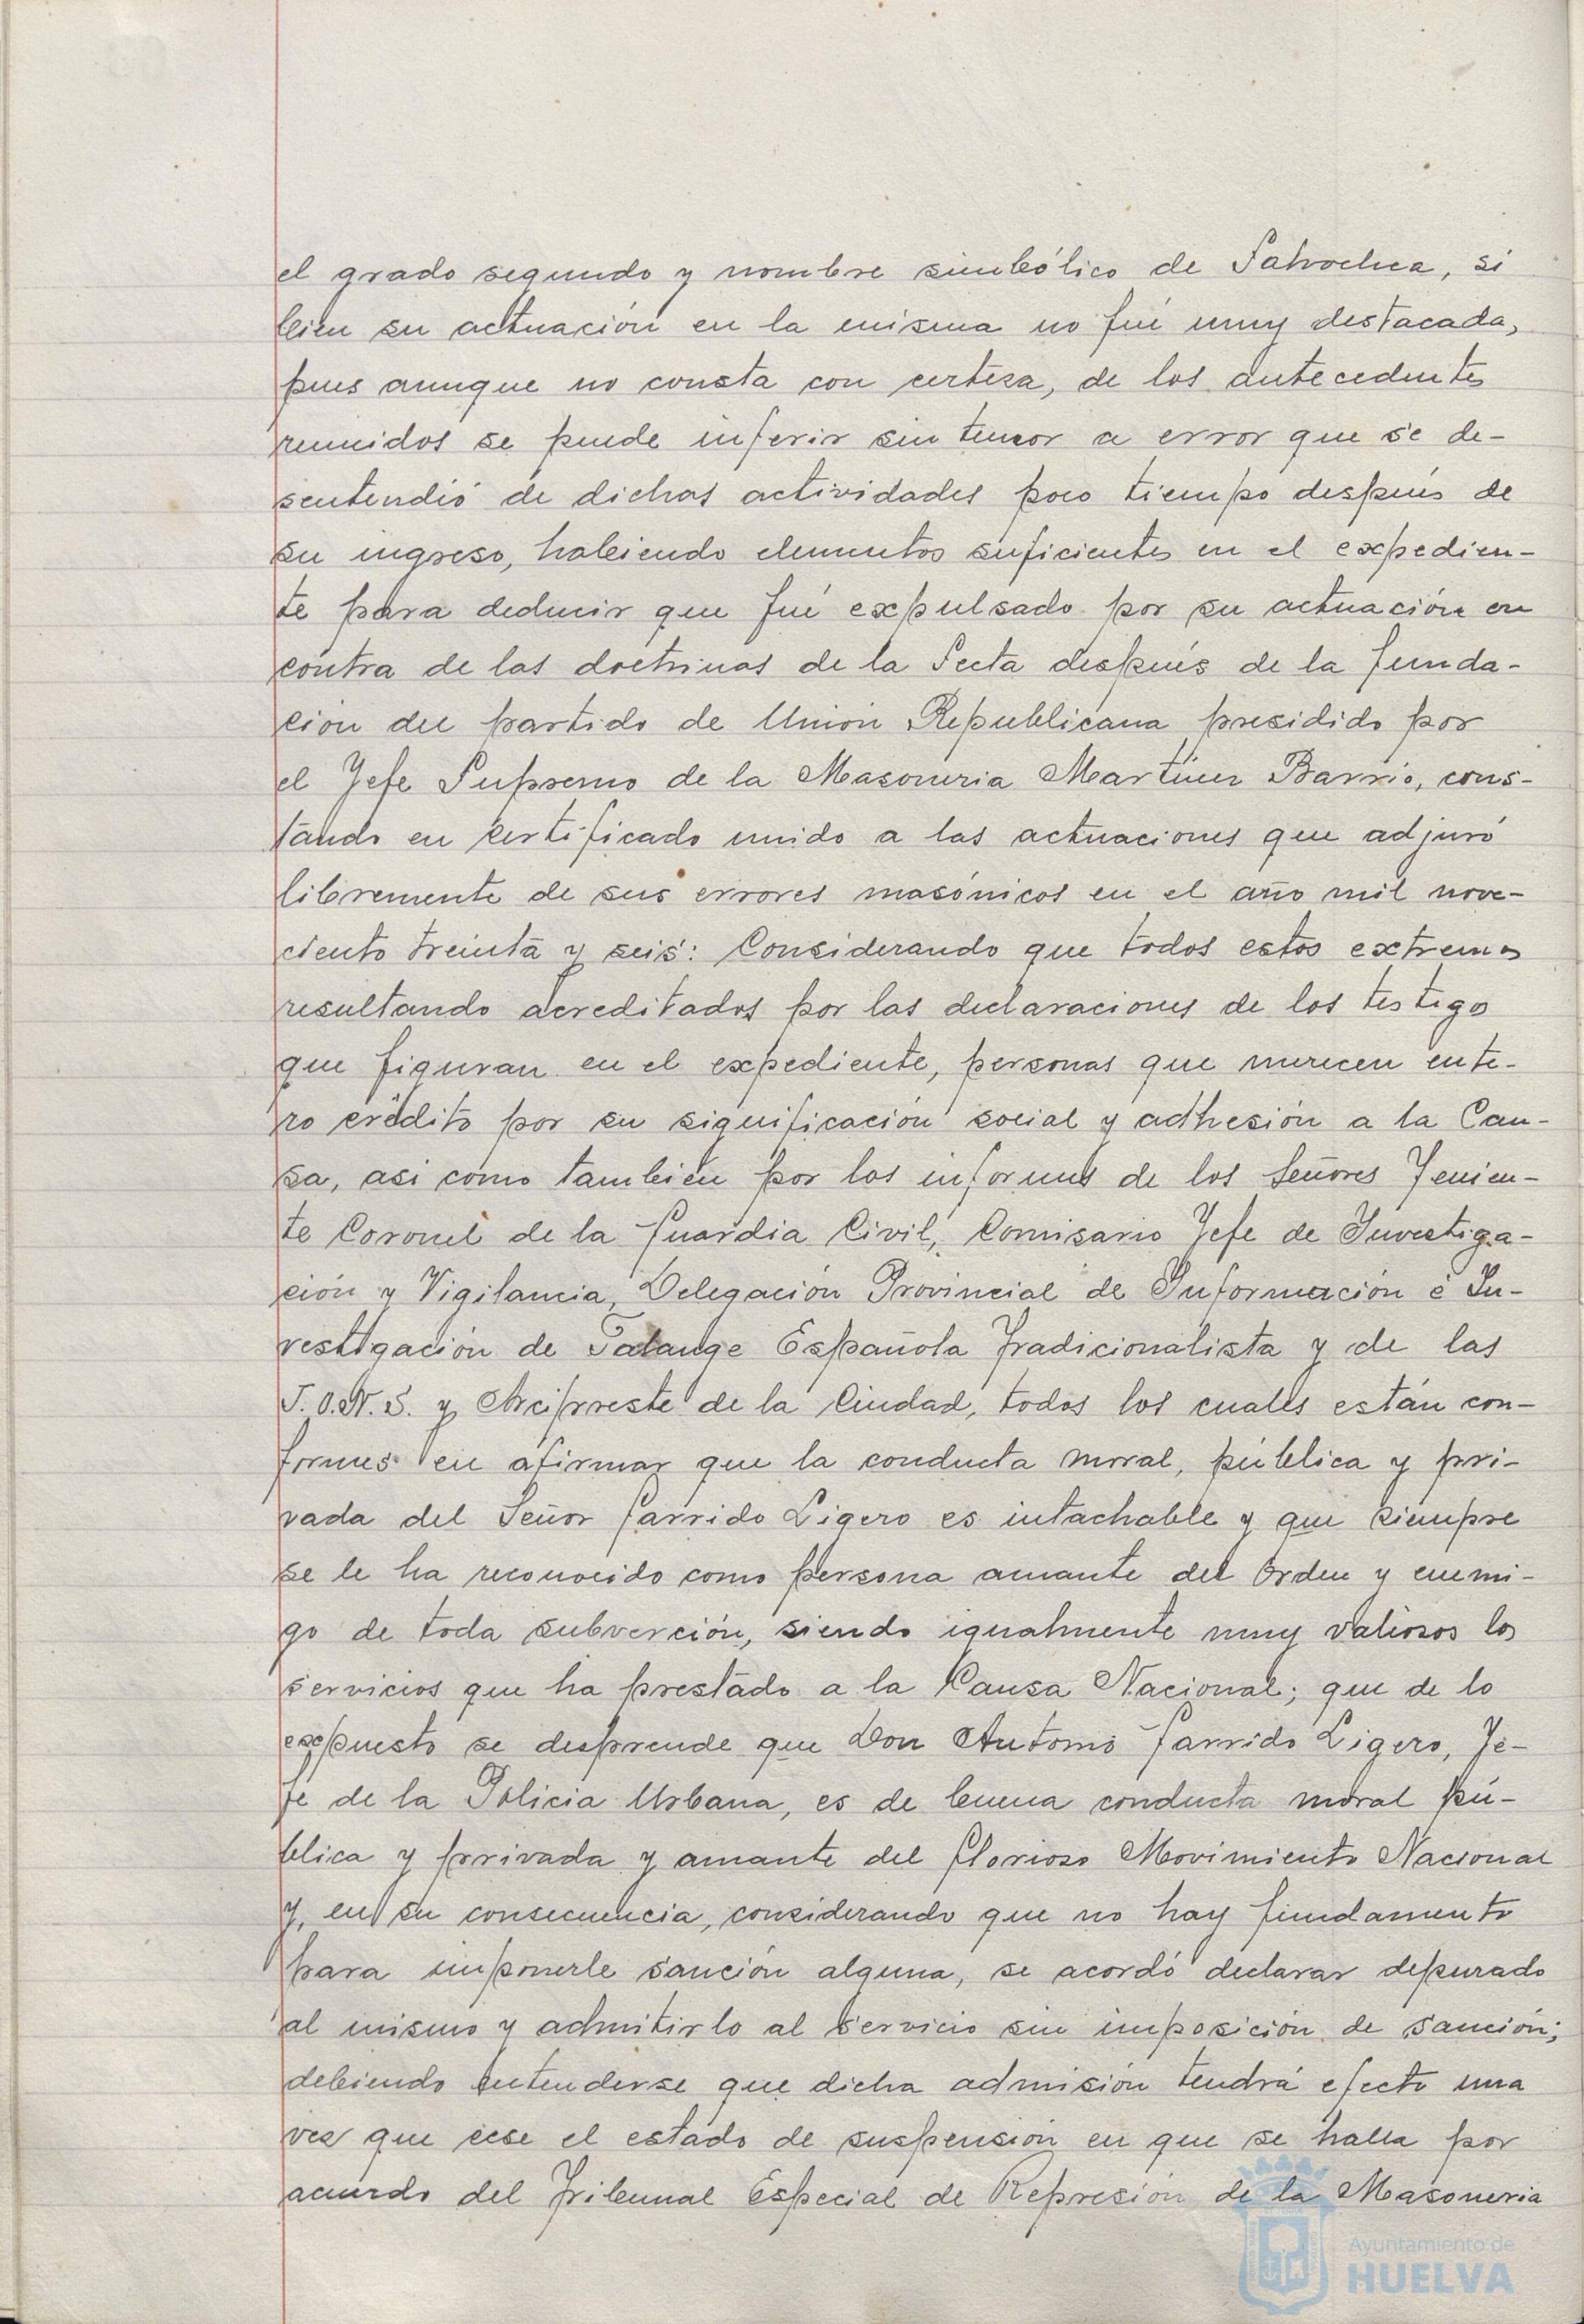 el grado segundo y nombre simbólico de Sahochea, si
bien su actuación en la misma no fué muy destacada,
pues aunque no consta con certeza, de los antecedentes
reunidos se puede inferir sin temor a error que se de-
sentendió de dichas actividades poco tiempo después de
su ingreso, habiendo elementos suficientes en el expedien-
te para deducir que fué expulsado por su actuación en
contra de las doctrinas de la Secta después de la funda-
ción del partido de Unión Republicana presidido por
el Jefe Supremo de la Masoneria Martínez Barrio, cons-
tando en certificado unido a las actuaciones que adjuró
libremente de sus errores masónicos en el año mil nove-
ciento treinta y seis: Considerando que todos estos extremos
resultando acreditados por las declaraciones de los testigos
que figuran en el expediente, personas que merecen ente-
ro crédito por su significación social y adhesión a la Cau-
sa, asi como también por los informes de los Señores Tenien-
te Coronel de la Guardia Civil, Comisario Jefe de Investiga-
ción y Vigilancia, Delegación Provincial de Información é In-
vestigación de Falange Española Tradicionalista y de las
J.O.N.S. y Arcipreste de la Ciudad, todos los cuales están con-
formes en afirmar que la conducta moral, pública y pri-
vada del Señor Garrido Ligero es intachable y que siempre
se le ha reconocido como persona amante del Orden y enemi-
go de toda subverción, siendo igualmente muy valiosos los
servicios que ha prestado a la Causa Nacional; que de lo
expuesto se desprende que Don Antonio Garrido Ligero, Je-
fe de la Policia Urbana, es de buena conducta moral pú-
blica y privada y amante del Glorioso Movimiento Nacional
y, en su consecuencia, considerando que no hay fundamento
para imponerle sanción alguna, se acordó declarar depurado
al mismo y admitirlo al servicio sin imposición de sanción;
debiendo entenderse que dicha admisión tendrá efecto una
vez que cese el estado de suspensión en que se halla por
acuerdo del Tribunal Especial de Represión de la Masoneria
Ayuntamiento de
HUELVA